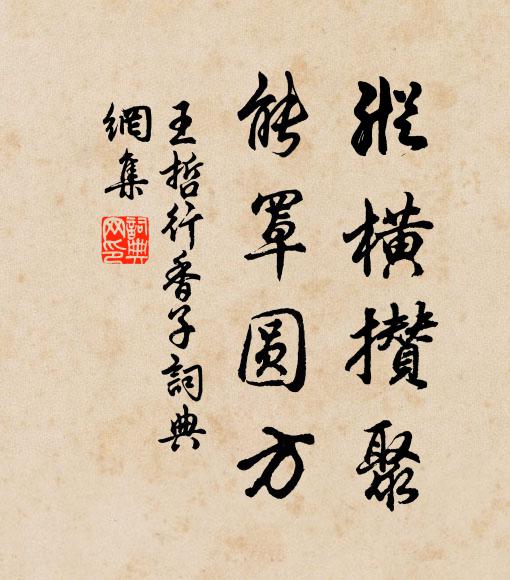 縱橫攢聚
能罩圆方
王哲行香子詞典
網集
詞典
网印